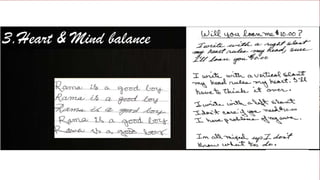 3. Heart & Mind balance
Rama is a good boy
Rama is a good boy
Rama is a good boy
Rama is a good boy
Rama is a good boy
Will you loan me $10.00?
I write with a right slant
my heart rules my head, sure
I'll loan you $10.00
I write with a vertical slant
my head rules my heart. I'll
have to think it over.
I write with a left slant
I don't care if you need $10.00
I have problems of my own.
I'm all mixed up I don't
know what to do.